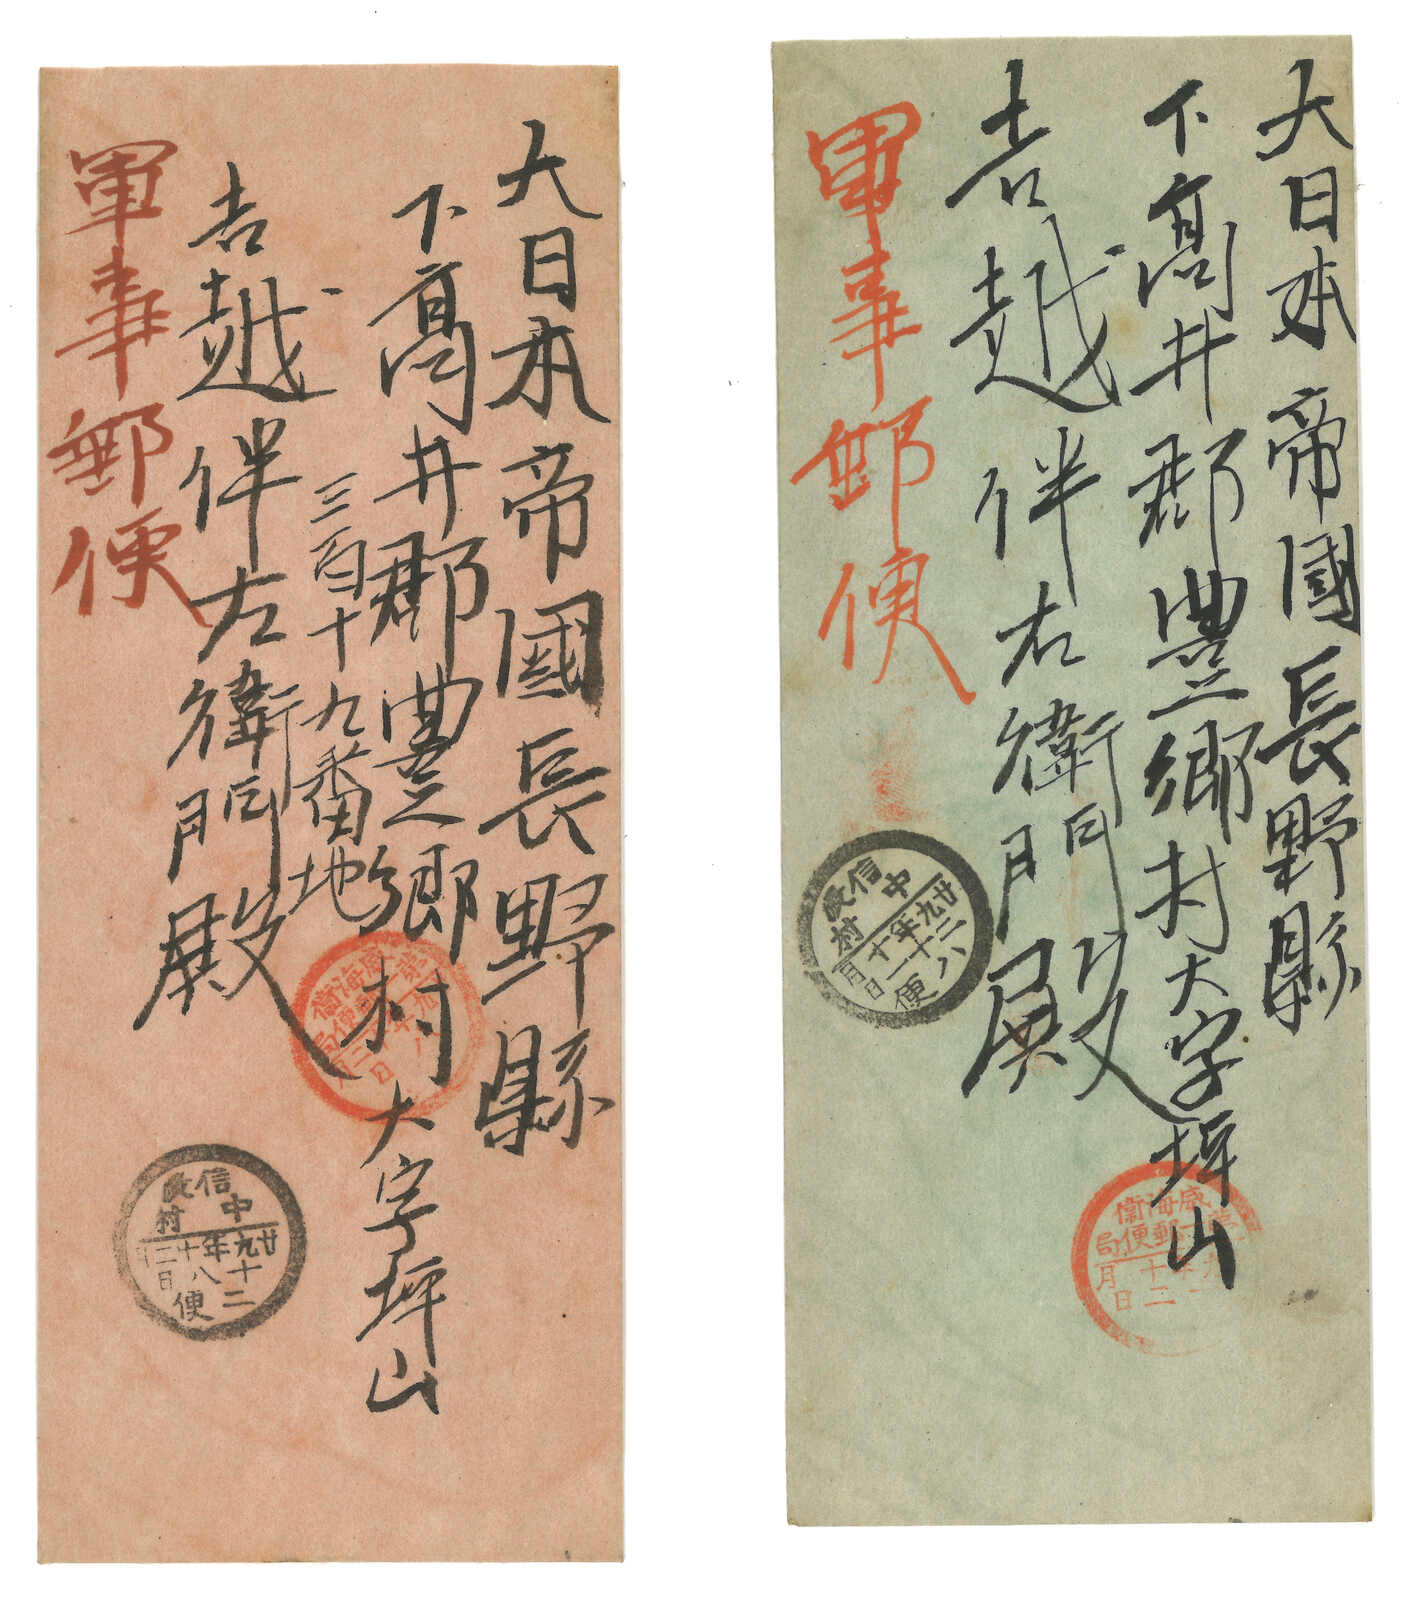 大日本帝國長野縣
下高井郡豊郷村大字坪山
三百十九番地
吉越伴左衛門殿
軍事郵便
威海衛
郵便局
信中
村
廿九年十二
十八
二日
便
大日本帝國長野縣
下高井郡豊郷村大字坪山
吉越伴右衛門殿
軍事郵便
信中
村
廿九年十二
八便
威海衛
郵便局
十二
月
日